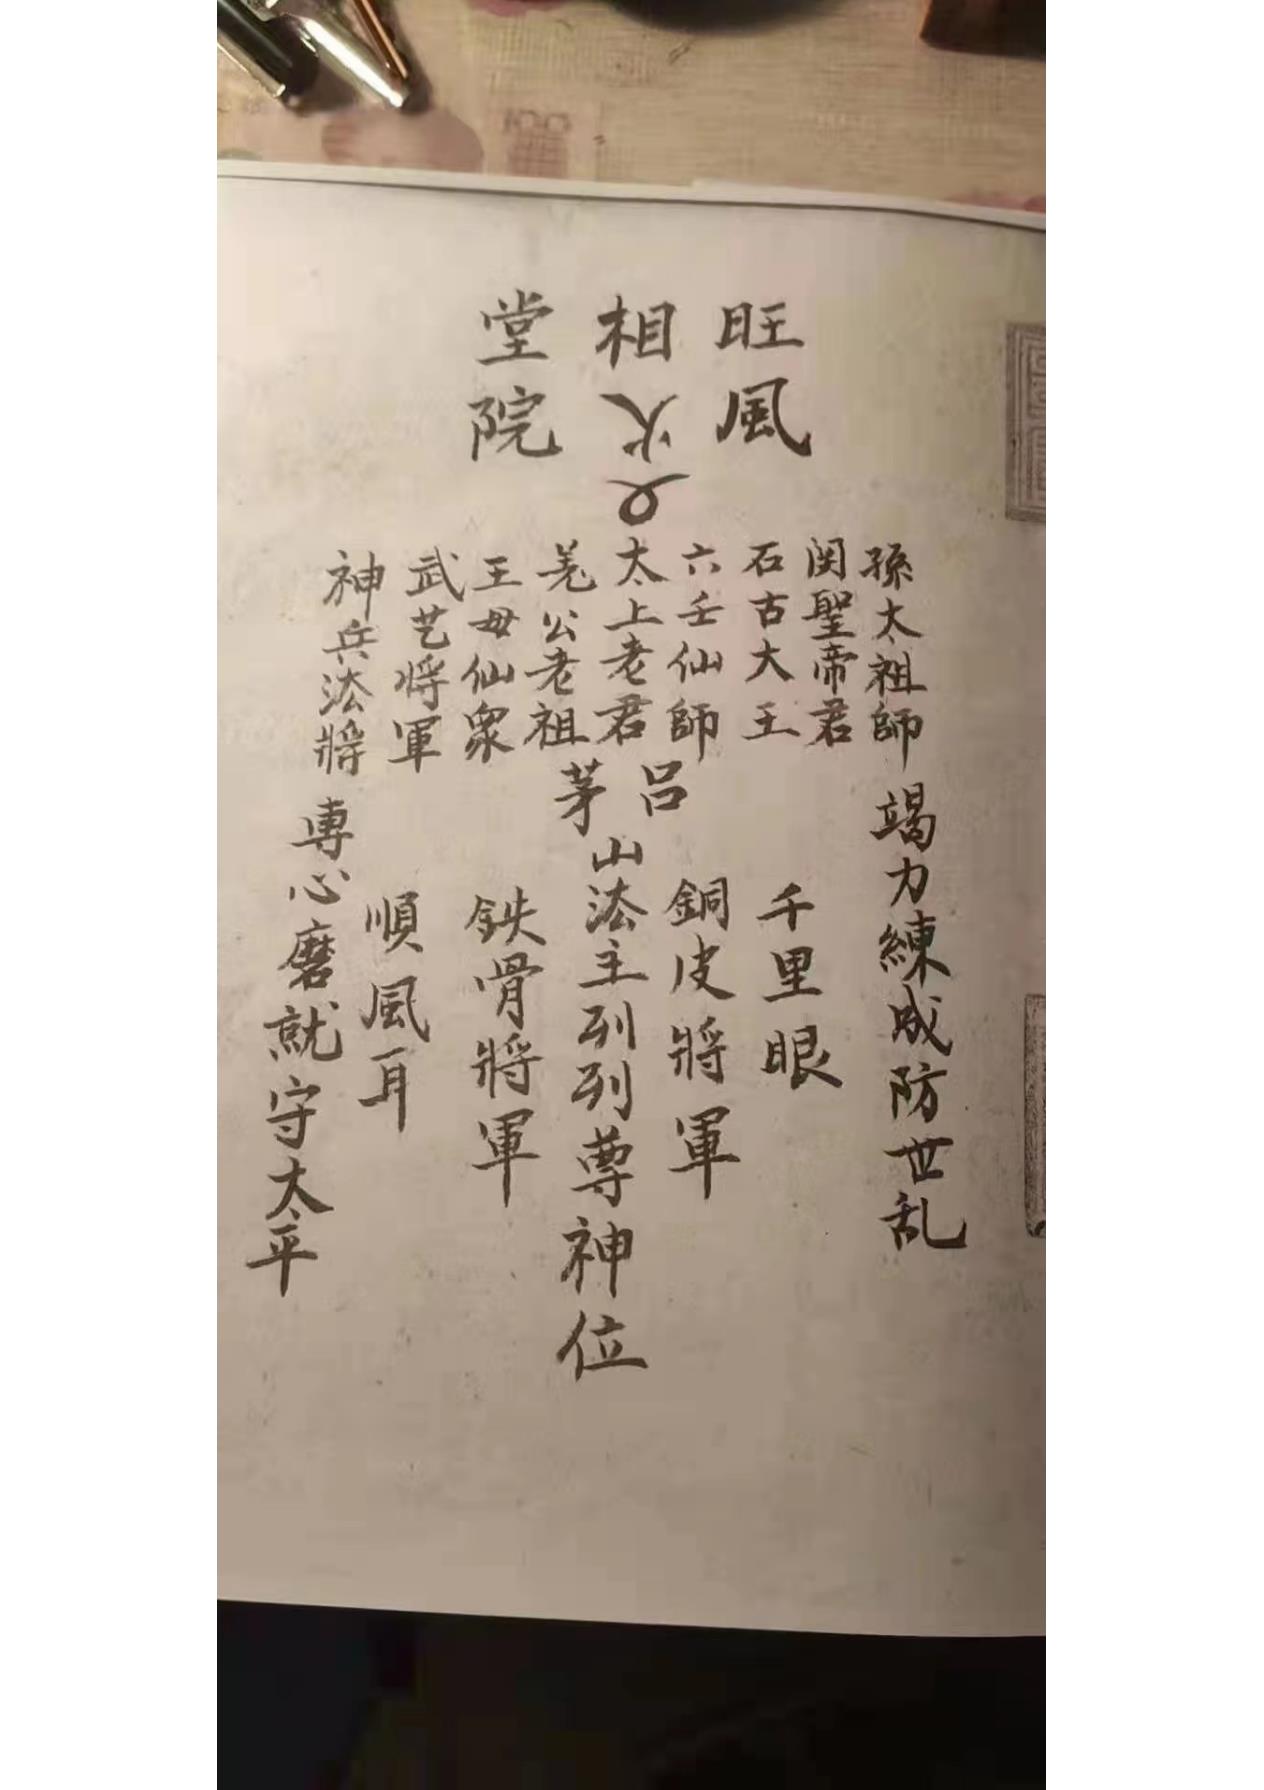 旺相堂
風火院
孫太祖師
関聖帝君
石古大王
六壬仙師
太上老君
羗公老祖
王母仙衆
武艺将軍
神兵法將
竭力練成防世乱
千里眼
銅皮將軍
呂茅
山法主列列尊神位
鉄骨將軍
順風耳
専心磨就守太平